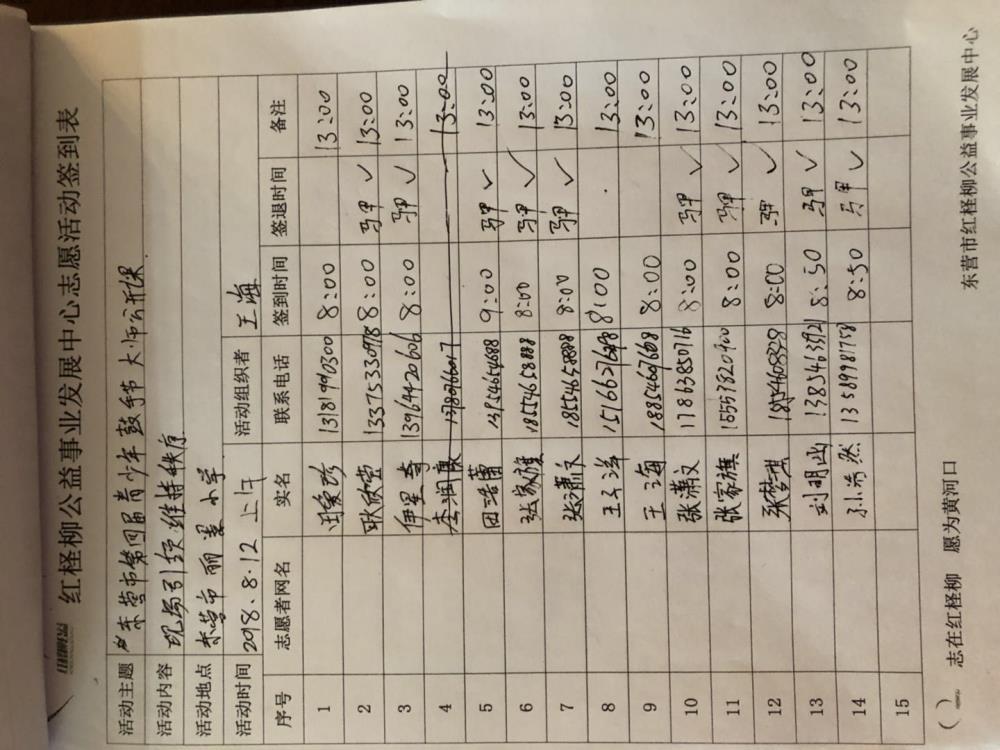 红柽柳公益事业发展中心志愿活动签到表
活动主题 东营市第四届青少年鼓手节大师公开课
活动内容 现场引领、维持秩序
活动地点 东营市丽景小学
活动时间 2018.8.12 上午 活动组织者 王海
序号 志愿者网名 实名 联系电话 签到时间 签退时间 备注
1 13181990300 8:00 13:00
2 耿欣莹 13375330978 8:00 马甲 ✓ 13:00
3 伊星奇 13964926606 8:00 马甲 ✓ 13:00
4 李润晨 13780766017 13:00
5 田浩蕾 13854654688 9:00 马甲 ✓ 13:00
6 张家旗 18554658888 8:00 马甲 ✓ 13:00
7 张潇文 18554658888 8:00 马甲 ✓ 13:00
8 王子洋 8:00 13:00
9 王海 18854607608 8:00 13:00
10 张潇文 17863850716 8:00 马甲 ✓ 13:00
11 张家旗 15553820900 8:00 马甲 ✓ 13:00
12 张梦琪 8:00 马甲 ✓ 13:00
13 刘明山 13854637921 8:50 马甲 ✓ 13:00
14 孙浩然 13589981758 8:50 马甲 ✓ 13:00
15
志在红柽柳 愿为黄河口 东营市红柽柳公益事业发展中心